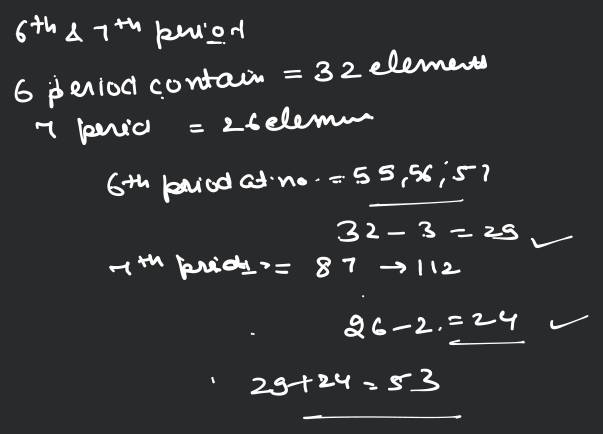 6th & 7th period
6 period contain = 32 elements
7 period = 26 elemen
6th period at. no. = 55, 56, 57
32 - 3 = 29
7th period = 87 → 112
26 - 2. = 24
29 + 24 = 53